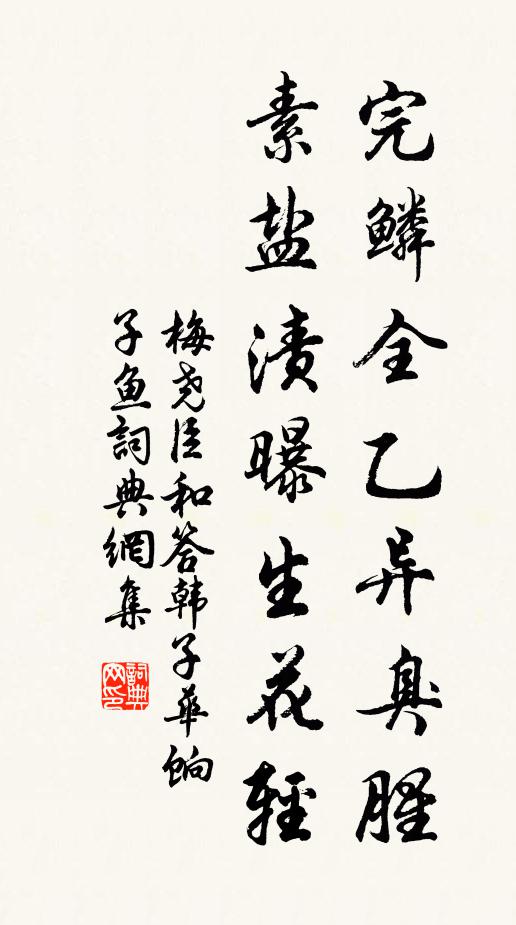 完鳞全乙异臭腥
素盐渍曝生花轻
梅尧臣和答韩子华饷
子鱼詞典網集
詞典网印